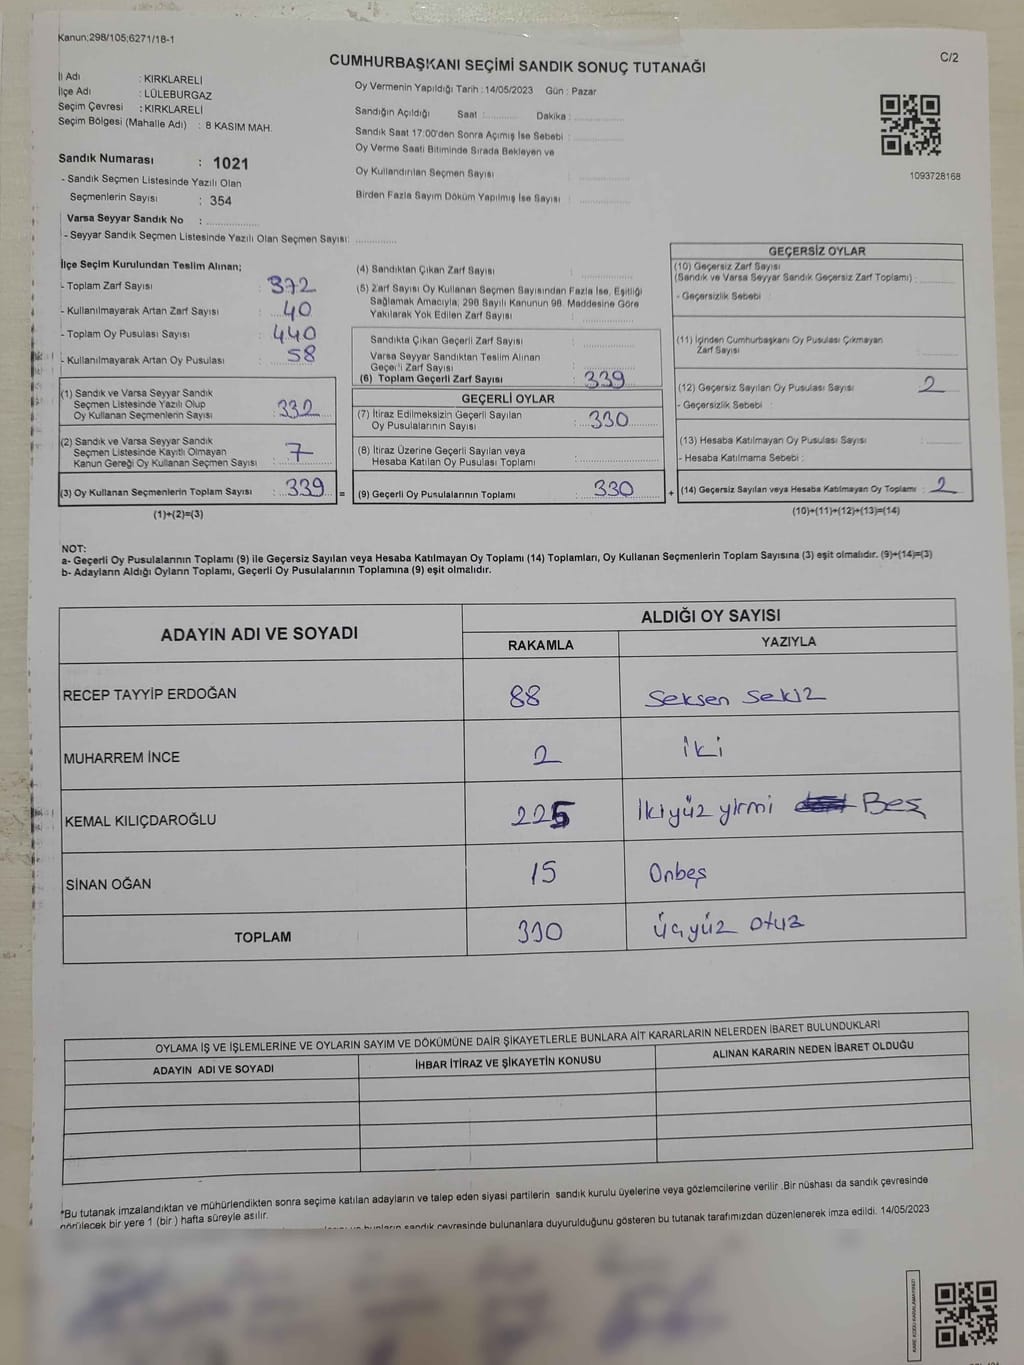 Kanun;298/105;6271/18-1
C/2
CUMHURBAŞKANI SEÇİMİ SANDIK SONUÇ TUTANAĞI
İl Adı : KIRKLARELİ
İlçe Adı : LÜLEBURGAZ
Seçim Çevresi : KIRKLARELİ
Seçim Bölgesi (Mahalle Adı) : 8 KASIM MAH.
Oy Vermenin Yapıldığı Tarih : 14/05/2023 Gün : Pazar
Sandığın Açıldığı Saat : Dakika :
Sandık Saat 17:00'den Sonra Açımış İse Sebebi :
Oy Verme Saati Bitiminde Sırada Bekleyen ve
Oy Kullandırılan Seçmen Sayısı
Birden Fazla Sayım Döküm Yapılmış İse Sayısı :
1093728168
Sandık Numarası : 1021
- Sandık Seçmen Listesinde Yazılı Olan
Seçmenlerin Sayısı : 354
Varsa Seyyar Sandık No :
- Seyyar Sandık Seçmen Listesinde Yazılı Olan Seçmen Sayısı:
İlçe Seçim Kurulundan Teslim Alınan;
- Toplam Zarf Sayısı : 372
- Kullanılmayarak Artan Zarf Sayısı : 40
- Toplam Oy Pusulası Sayısı : 440
- Kullanılmayarak Artan Oy Pusulası : 58
(1) Sandık ve Varsa Seyyar Sandık
Seçmen Listesinde Yazılı Olup
Oy Kullanan Seçmenlerin Sayısı : 332
(2) Sandık ve Varsa Seyyar Sandık
Seçmen Listesinde Kayıtlı Olmayan
Kanun Gereği Oy Kullanan Seçmen Sayısı : 7
(3) Oy Kullanan Seçmenlerin Toplam Sayısı : 339 =
(1)+(2)=(3)
(4) Sandıktan Çıkan Zarf Sayısı :
(5) Zarf Sayısı Oy Kullanan Seçmen Sayısından Fazla İse, Eşitliği
Sağlamak Amacıyla; 298 Sayılı Kanunun 98. Maddesine Göre
Yakılarak Yok Edilen Zarf Sayısı :
Sandıkta Çıkan Geçerli Zarf Sayısı :
Varsa Seyyar Sandıktan Teslim Alınan
Geçerli Zarf Sayısı :
(6) Toplam Geçerli Zarf Sayısı : 339
GEÇERLİ OYLAR
(7) İtiraz Edilmeksizin Geçerli Sayılan
Oy Pusulalarının Sayısı : 330
(8) İtiraz Üzerine Geçerli Sayılan veya
Hesaba Katılan Oy Pusulası Toplamı :
(9) Geçerli Oy Pusulalarının Toplamı : 330 +
GEÇERSİZ OYLAR
(10) Geçersiz Zarf Sayısı
(Sandık ve Varsa Seyyar Sandık Geçersiz Zarf Toplamı) :
- Geçersizlik Sebebi :
(11) İçinden Cumhurbaşkanı Oy Pusulası Çıkmayan
Zarf Sayısı :
(12) Geçersiz Sayılan Oy Pusulası Sayısı : 2
- Geçersizlik Sebebi :
(13) Hesaba Katılmayan Oy Pusulası Sayısı :
- Hesaba Katılmama Sebebi :
(14) Geçersiz Sayılan veya Hesaba Katılmayan Oy Toplamı : 2
(10)+(11)+(12)+(13)=(14)
NOT:
a- Geçerli Oy Pusulalarının Toplamı (9) ile Geçersiz Sayılan veya Hesaba Katılmayan Oy Toplamı (14) Toplamları, Oy Kullanan Seçmenlerin Toplam Sayısına (3) eşit olmalıdır. (9)+(14)=(3)
b- Adayların Aldığı Oyların Toplamı, Geçerli Oy Pusulalarının Toplamına (9) eşit olmalıdır.
ADAYIN ADI VE SOYADI
ALDIĞI OY SAYISI
RAKAMLA YAZIYLA
RECEP TAYYİP ERDOĞAN 88 Seksen Sekiz
MUHARREM İNCE 2 iki
KEMAL KILIÇDAROĞLU 225 İkiyüz yirmi Beş
SİNAN OĞAN 15 Onbeş
TOPLAM 330 üçyüz otuz
OYLAMA İŞ VE İŞLEMLERİNE VE OYLARIN SAYIM VE DÖKÜMÜNE DAİR ŞİKAYETLERLE BUNLARA AİT KARARLARIN NELERDEN İBARET BULUNDUKLARI
ADAYIN ADI VE SOYADI İHBAR İTİRAZ VE ŞİKAYETİN KONUSU ALINAN KARARIN NEDEN İBARET OLDUĞU
*Bu tutanak imzalandıktan ve mühürlendikten sonra seçime katılan adayların ve talep eden siyasi partilerin sandık kurulu üyelerine veya gözlemcilerine verilir .Bir nüshası da sandık çevresinde
görülecek bir yere 1 (bir ) hafta süreyle asılır.
bunların sandık çevresinde bulunanlara duyurulduğunu gösteren bu tutanak tarafımızdan düzenlenerek imza edildi. 14/05/2023
KARE KODU KARALAMAYINIZ!